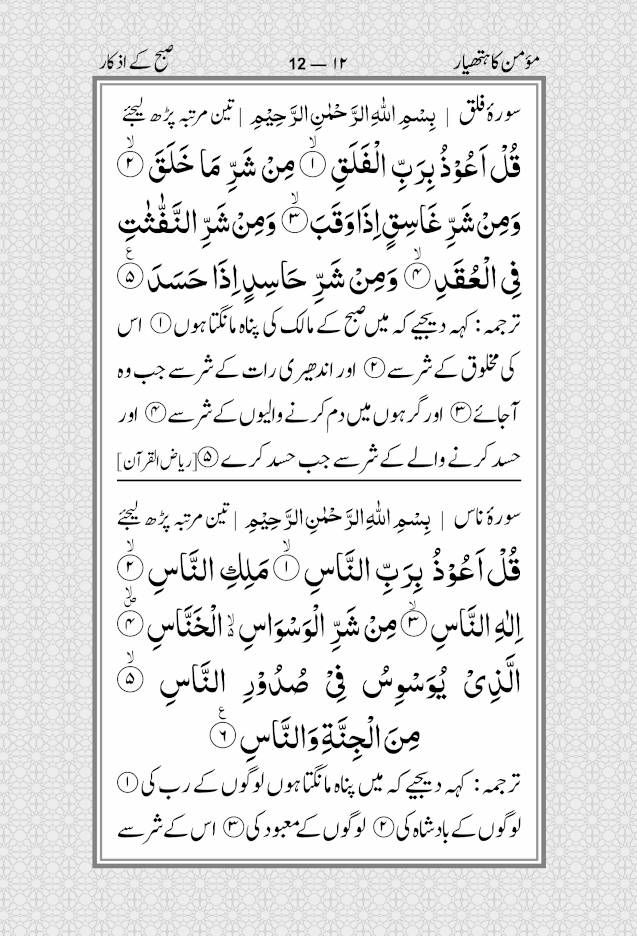 مؤمن کا ہتھیار ۱۲ — 12 صبح کے اذکار
سورۂ فلق | بِسْمِ اللّٰہِ الرَّحْمٰنِ الرَّحِیْمِ | تین مرتبہ پڑھ لیجئے
قُلْ اَعُوْذُ بِرَبِّ الْفَلَقِ ۙ﴿۱﴾ مِنْ شَرِّ مَا خَلَقَ ۙ﴿۲﴾
وَمِنْ شَرِّ غَاسِقٍ اِذَا وَقَبَ ۙ﴿۳﴾ وَمِنْ شَرِّ النَّفّٰثٰتِ
فِی الْعُقَدِ ۙ﴿۴﴾ وَمِنْ شَرِّ حَاسِدٍ اِذَا حَسَدَ ﴿۵﴾ع
ترجمہ: کہہ دیجیے کہ میں صبح کے مالک کی پناہ مانگتا ہوں ﴿۱﴾ اس
کی مخلوق کے شر سے ﴿۲﴾ اور اندھیری رات کے شر سے جب وہ
آجائے ﴿۳﴾ اور گرہوں میں دم کرنے والیوں کے شر سے ﴿۴﴾ اور
حسد کرنے والے کے شر سے جب حسد کرے ﴿۵﴾ [ریاض القرآن]
سورۂ ناس | بِسْمِ اللّٰہِ الرَّحْمٰنِ الرَّحِیْمِ | تین مرتبہ پڑھ لیجئے
قُلْ اَعُوْذُ بِرَبِّ النَّاسِ ۙ﴿۱﴾ مَلِکِ النَّاسِ ۙ﴿۲﴾
اِلٰہِ النَّاسِ ۙ﴿۳﴾ مِنْ شَرِّ الْوَسْوَاسِ ۬ۙ الْخَنَّاسِ ۪ۙ﴿۴﴾
الَّذِیْ یُوَسْوِسُ فِیْ صُدُوْرِ النَّاسِ ۙ﴿۵﴾
مِنَ الْجِنَّۃِ وَالنَّاسِ ﴿۶﴾ع
ترجمہ: کہہ دیجیے کہ میں پناہ مانگتا ہوں لوگوں کے رب کی ﴿۱﴾
لوگوں کے بادشاہ کی ﴿۲﴾ لوگوں کے معبود کی ﴿۳﴾ اس کے شر سے